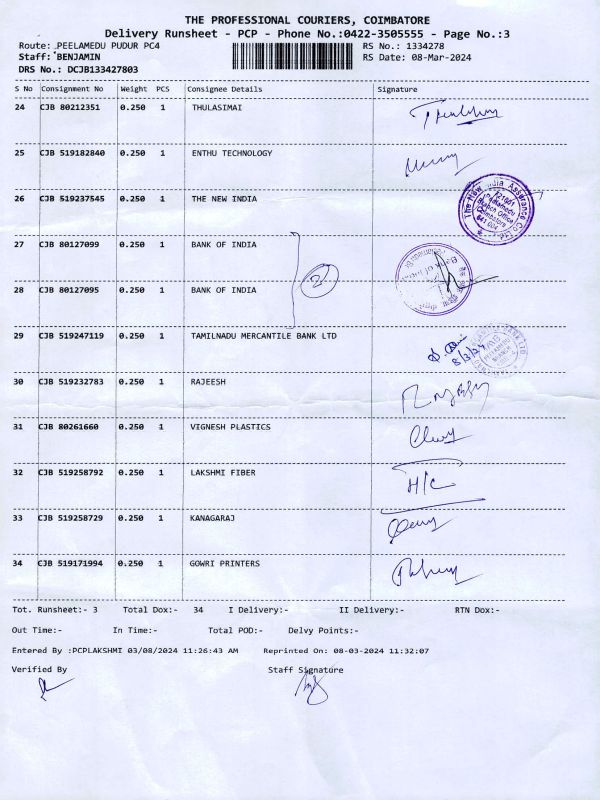 THE PROFESSIONAL COURIERS, COIMBATORE
Delivery Runsheet - PCP - Phone No.:0422-3505555 - Page No.:3
Route: PEELAMEDU PUDUR PC4 RS No.: 1334278
Staff: BENJAMIN RS Date: 08-Mar-2024
DRS No.: DCJB133427803
S No Consignment No Weight PCS Consignee Details Signature
24 CJB 80212351 0.250 1 THULASIMAI
25 CJB 519182840 0.250 1 ENTHU TECHNOLOGY
26 CJB 519237545 0.250 1 THE NEW INDIA
The New India Assurance Co Ltd
Peelamedu
Branch Office
Coimbatore
27 CJB 80127099 0.250 1 BANK OF INDIA
2
28 CJB 80127095 0.250 1 BANK OF INDIA
29 CJB 519247119 0.250 1 TAMILNADU MERCANTILE BANK LTD
8/3/24
30 CJB 519232783 0.250 1 RAJEESH
31 CJB 80261660 0.250 1 VIGNESH PLASTICS
32 CJB 519258792 0.250 1 LAKSHMI FIBER H/C
33 CJB 519258729 0.250 1 KANAGARAJ
34 CJB 519171994 0.250 1 GOWRI PRINTERS
Tot. Runsheet:- 3 Total Dox:- 34 I Delivery:- II Delivery:- RTN Dox:-
Out Time:- In Time:- Total POD:- Delvy Points:-
Entered By :PCPLAKSHMI 03/08/2024 11:26:43 AM Reprinted On: 08-03-2024 11:32:07
Verified By Staff Signature